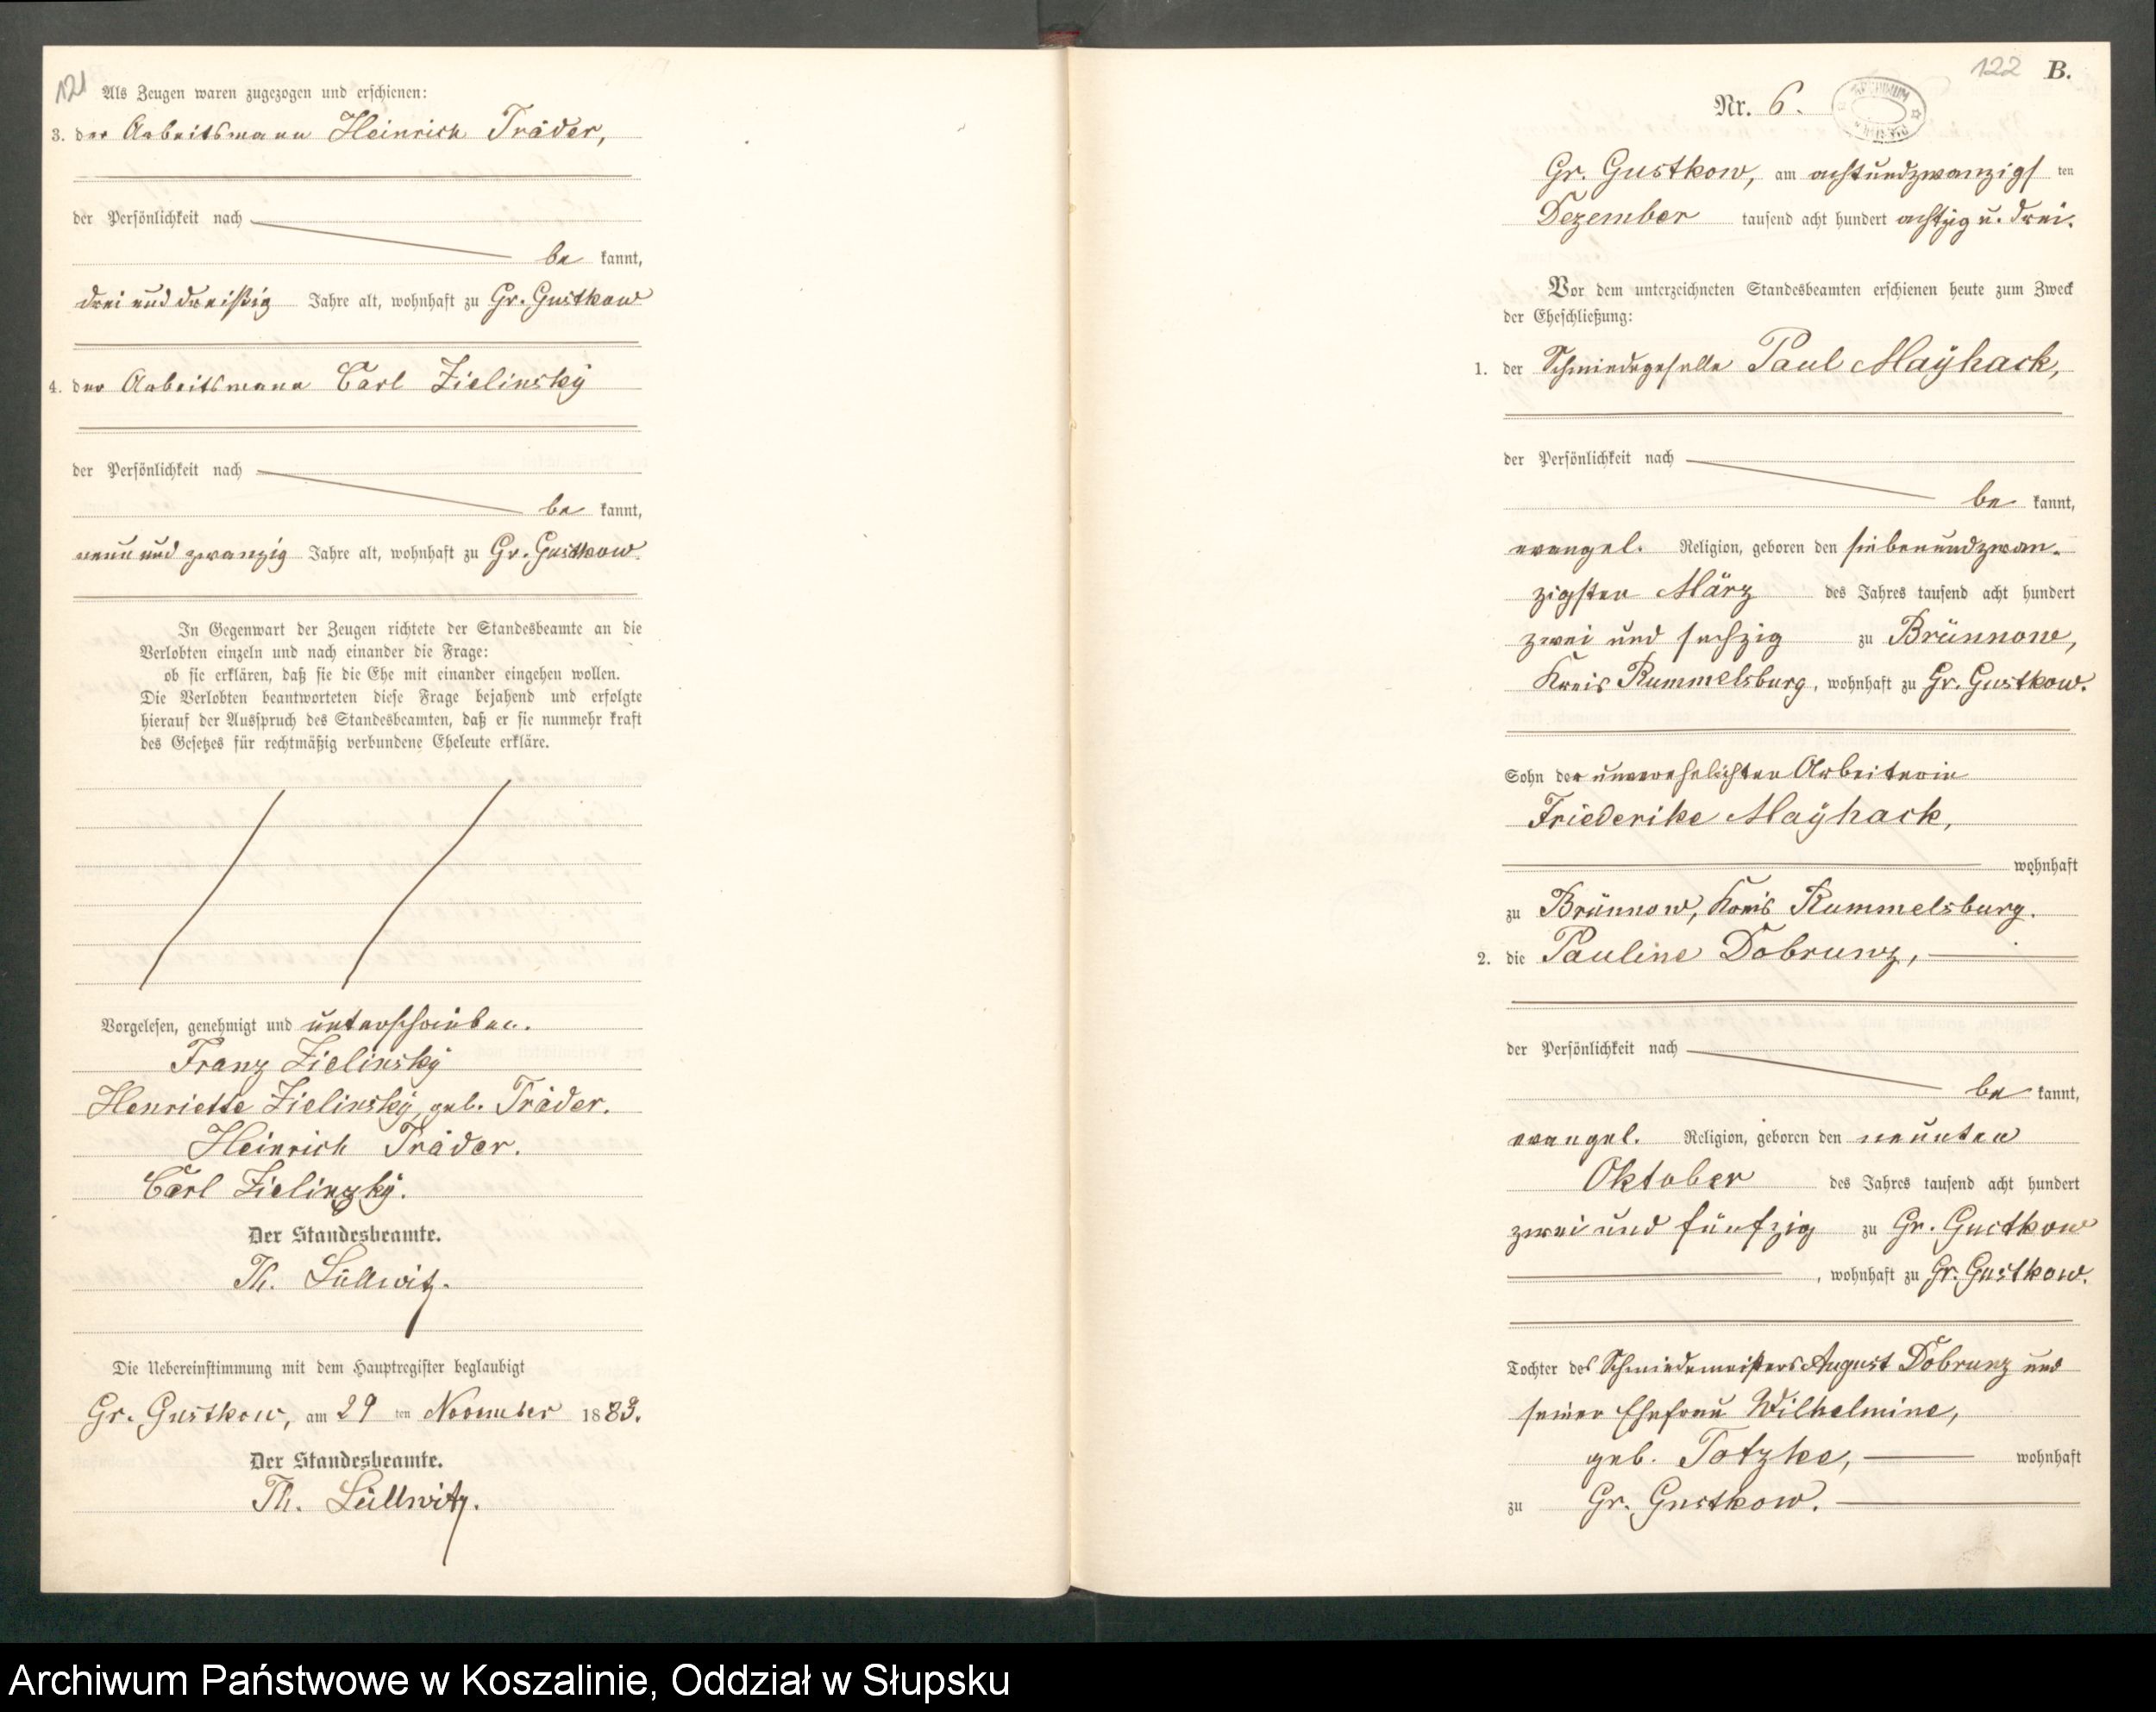 121
Als Zeugen waren zugezogen und erschienen:
3. der Arbeitsmann Heinrich Träder,
der Persönlichkeit nach
be kannt,
drei und dreißig Jahre alt, wohnhaft zu Gr. Gustkow
4. der Arbeitsmann Carl Zielinský
der Persönlichkeit nach
be kannt,
neun und zwanzig Jahre alt, wohnhaft zu Gr. Gustkow.
In Gegenwart der Zeugen richtete der Standesbeamte an die
Verlobten einzeln und nach einander die Frage:
ob sie erklären, daß sie die Ehe mit einander eingehen wollen.
Die Verlobten beantworteten diese Frage bejahend und erfolgte
hierauf der Ausspruch des Standesbeamten, daß er sie nunmehr kraft
des Gesetzes für rechtmäßig verbundene Eheleute erkläre.
Vorgelesen, genehmigt und unterschrieben.
Franz Zielinský
Henriette Zielinský, geb. Träder.
Heinrich Träder.
Carl Zielinzký.
Der Standesbeamte.
Th. Lüllwitz.
Die Uebereinstimmung mit dem Hauptregister beglaubigt
Gr. Gustkow, am 29 ten November 1883.
Der Standesbeamte.
Th. Lüllwitz.
122 B.
Nr. 6.
ARCHIWUM
Gr. Gustkow, am achtundzwanzigs ten
Dezember tausend acht hundert achtzig u. drei.
Vor dem unterzeichneten Standesbeamten erschienen heute zum Zweck
der Eheschließung:
1. der Schmiedegeselle Paul Maÿhack,
der Persönlichkeit nach
be kannt,
evangel. Religion, geboren den siebenundzwan-
zigsten März des Jahres tausend acht hundert
zwei und sechzig zu Brünnow,
Kreis Rummelsburg, wohnhaft zu Gr. Gustkow.
Sohn der unverehelichten Arbeiterin
Friederike Maÿhack,
wohnhaft
zu Brünnow, Kreis Rummelsburg.
2. die Pauline Dobrunz,
der Persönlichkeit nach
be kannt,
evangel. Religion, geboren den neunten
Oktober des Jahres tausend acht hundert
zwei und fünfzig zu Gr. Gustkow
, wohnhaft zu Gr. Gustkow.
Tochter des Schmiedemeisters August Dobrunz und
seiner Ehefrau Wilhelmine,
geb. Totzke, wohnhaft
zu Gr. Gustkow.
Archiwum Państwowe w Koszalinie, Oddział w Słupsku